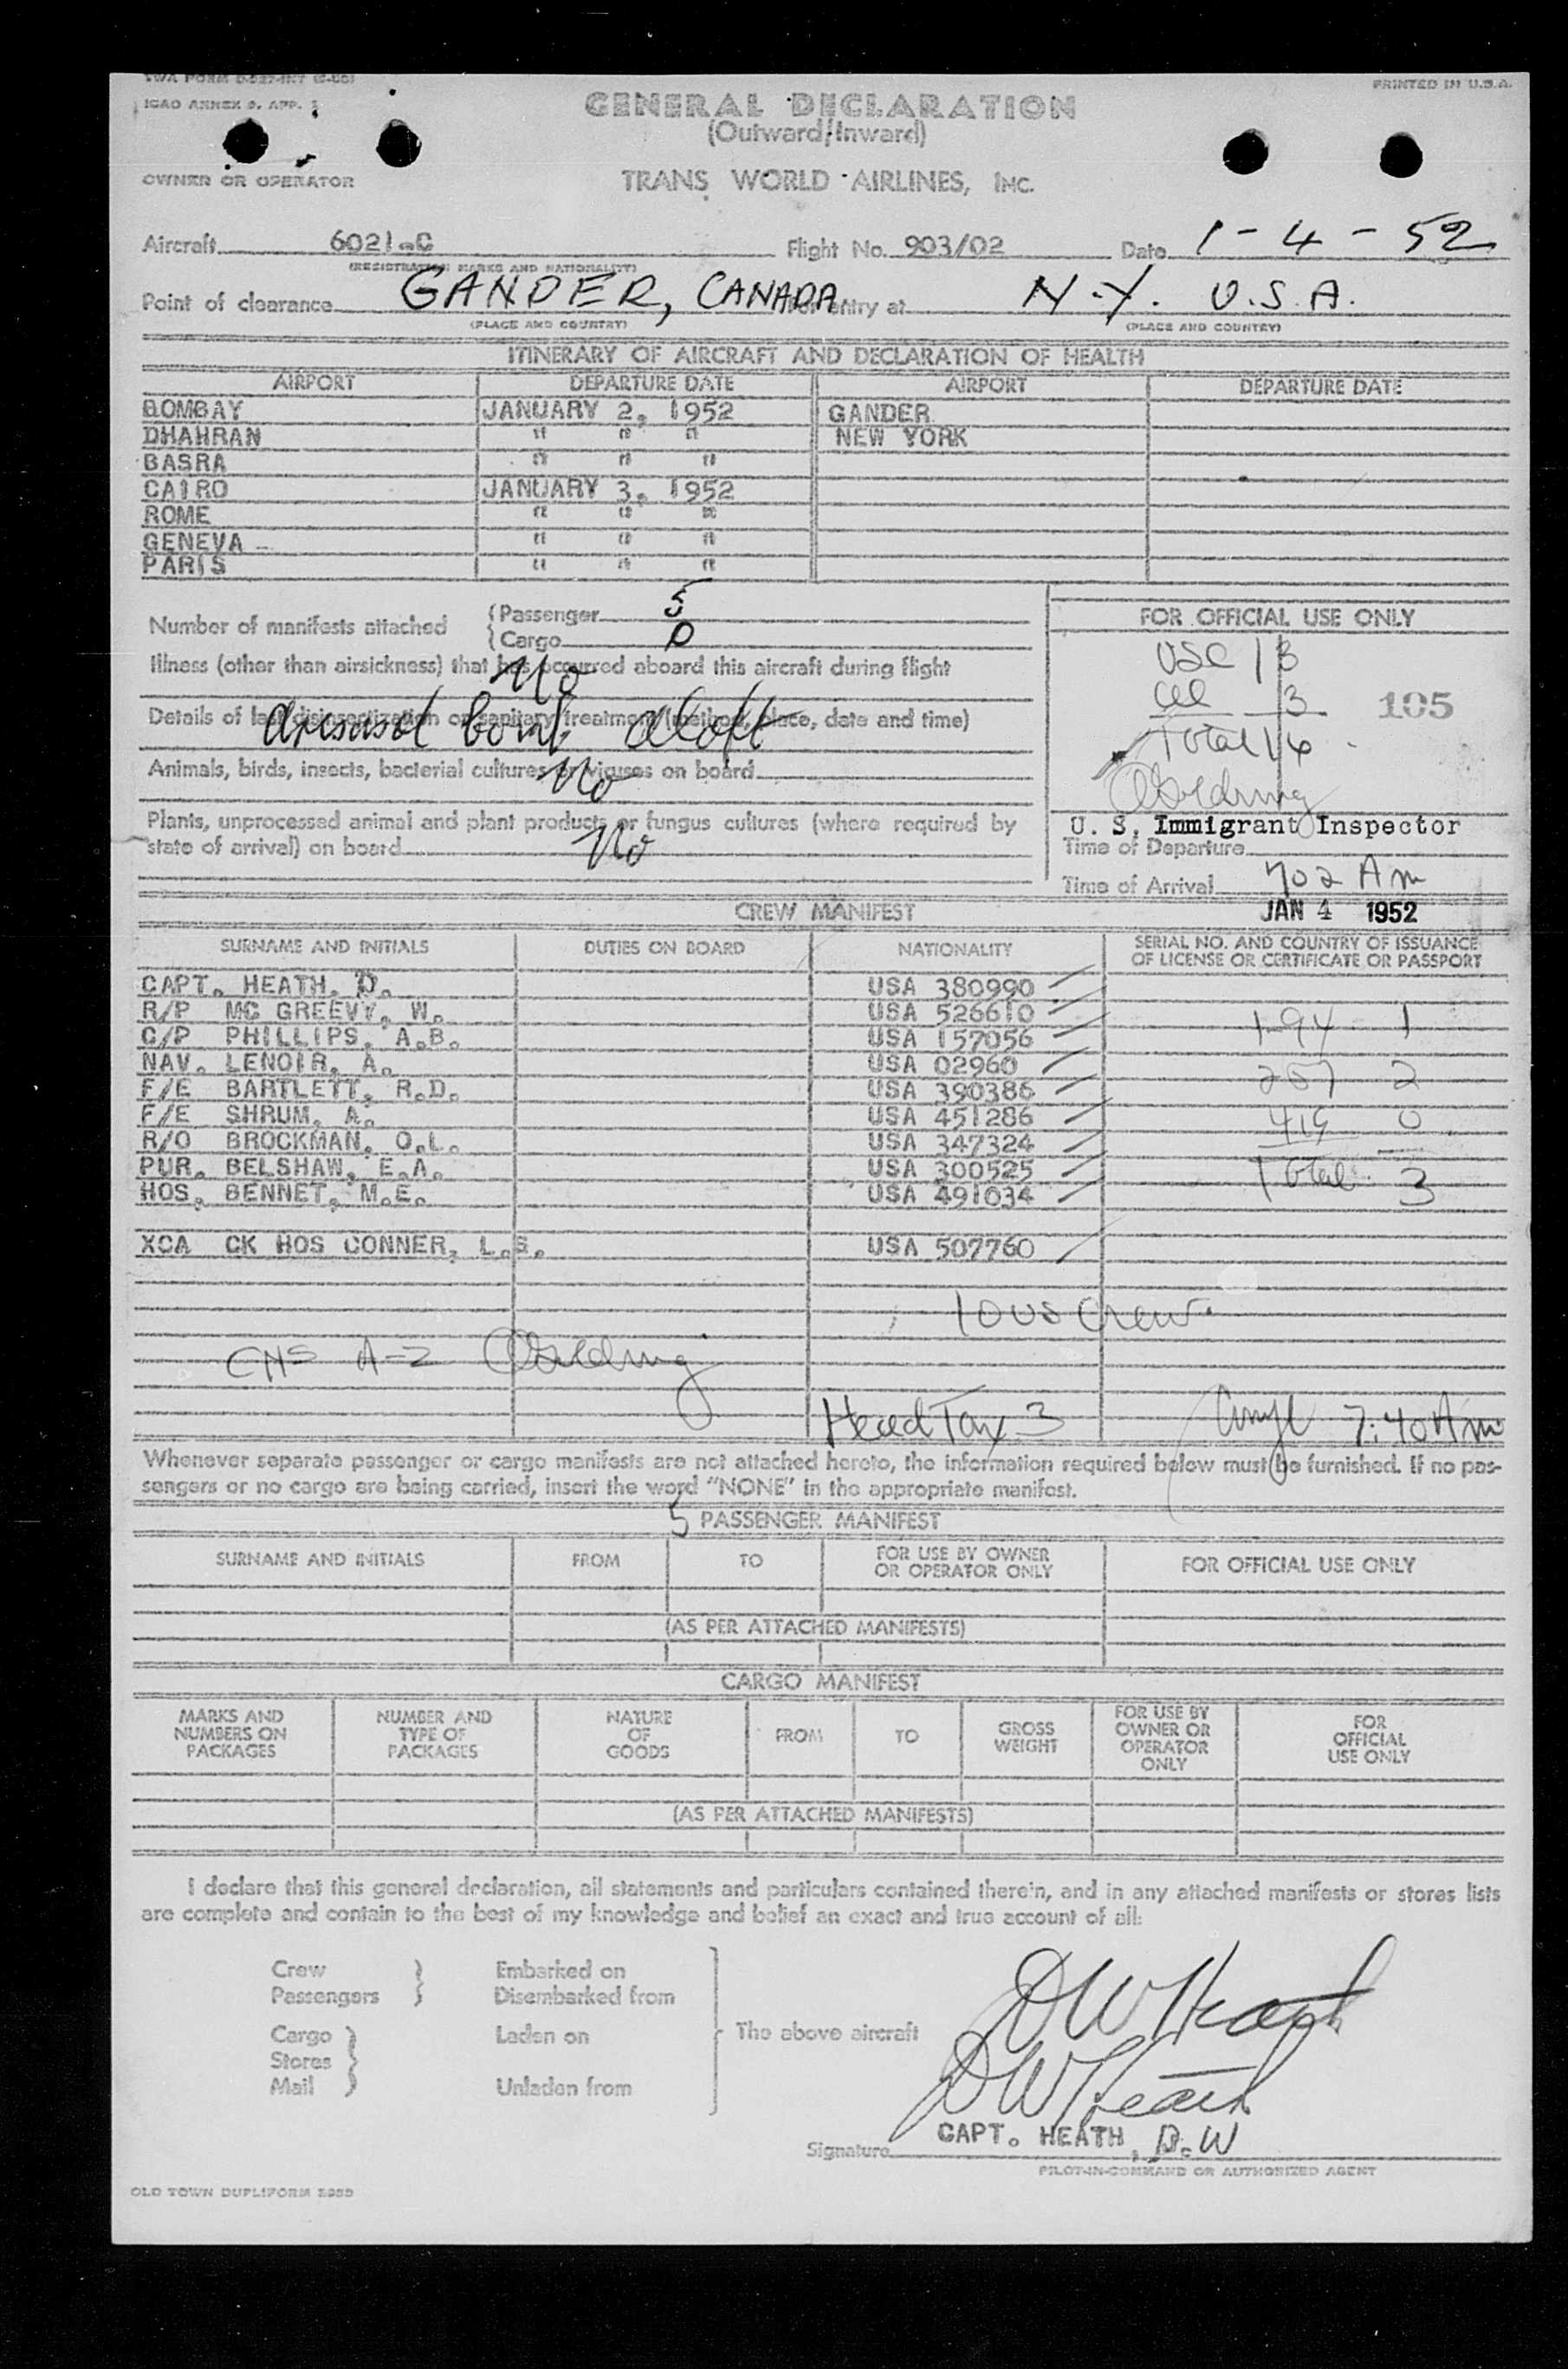 TWA FORM
ICAO ANNEX 9. APP. 1
PRINTED IN U.S.A.
GENERAL DECLARATION
(Outward/Inward)
OWNER OR OPERATOR TRANS WORLD AIRLINES, INC.
Aircraft 6021-C Flight No. 903/02 Date 1-4-52
(REGISTRATION MARKS AND NATIONALITY)
Point of clearance GANDER, CANADA For entry at N.Y. U.S.A.
(PLACE AND COUNTRY) (PLACE AND COUNTRY)
ITINERARY OF AIRCRAFT AND DECLARATION OF HEALTH
AIRPORT DEPARTURE DATE AIRPORT DEPARTURE DATE
BOMBAY JANUARY 2, 1952 GANDER
DHAHRAN " " " NEW YORK
BASRA " " "
CAIRO JANUARY 3, 1952
ROME " " "
GENEVA " " "
PARIS " " "
Number of manifests attached
{Passenger 5
{Cargo 0
Illness (other than airsickness) that has occurred aboard this aircraft during flight
No
Details of last disinsectization or sanitary treatment (method, place, date and time)
bomb aloft
Animals, birds, insects, bacterial cultures or viruses on board
No
Plants, unprocessed animal and plant products or fungus cultures (where required by
state of arrival) on board No
FOR OFFICIAL USE ONLY
USC 13
3
105
Total 16
U. S. Immigrant Inspector
Time of Departure
Time of Arrival 702 Am
JAN 4 1952
CREW MANIFEST
SURNAME AND INITIALS DUTIES ON BOARD NATIONALITY SERIAL NO. AND COUNTRY OF ISSUANCE
OF LICENSE OR CERTIFICATE OR PASSPORT
CAPT. HEATH, D. USA 380990
R/P MC GREEVY, W. USA 526610 194 1
C/P PHILLIPS, A.B. USA 157056
NAV. LENOIR, A. USA 02960 257 2
F/E BARTLETT, R.D. USA 390386
F/E SHRUM, A. USA 451286 419 0
R/O BROCKMAN, O.L. USA 347324
PUR. BELSHAW, E.A. USA 300525 Total 3
HOS. BENNET, M.E. USA 491034
XCA CK HOS CONNER, L.S. USA 507760
10 US Crew
A-2
Head Tax 3 7:40 Am
Whenever separate passenger or cargo manifests are not attached hereto, the information required below must be furnished. If no pas-
sengers or no cargo are being carried, insert the word "NONE" in the appropriate manifest.
5 PASSENGER MANIFEST
SURNAME AND INITIALS FROM TO FOR USE BY OWNER
OR OPERATOR ONLY FOR OFFICIAL USE ONLY
(AS PER ATTACHED MANIFESTS)
CARGO MANIFEST
MARKS AND
NUMBERS ON
PACKAGES
NUMBER AND
TYPE OF
PACKAGES
NATURE
OF
GOODS
FROM
TO
GROSS
WEIGHT
FOR USE BY
OWNER OR
OPERATOR
ONLY
FOR
OFFICIAL
USE ONLY
(AS PER ATTACHED MANIFESTS)
I declare that this general declaration, all statements and particulars contained therein, and in any attached manifests or stores lists
are complete and contain to the best of my knowledge and belief an exact and true account of all:
Crew } Embarked on
Passengers } Disembarked from
Cargo } Laden on
Stores }
Mail } Unladen from
The above aircraft
DW Heath
DW Heath
CAPT. HEATH, D.W
Signature
PILOT-IN-COMMAND OR AUTHORIZED AGENT
OLD TOWN DUPLIFORM